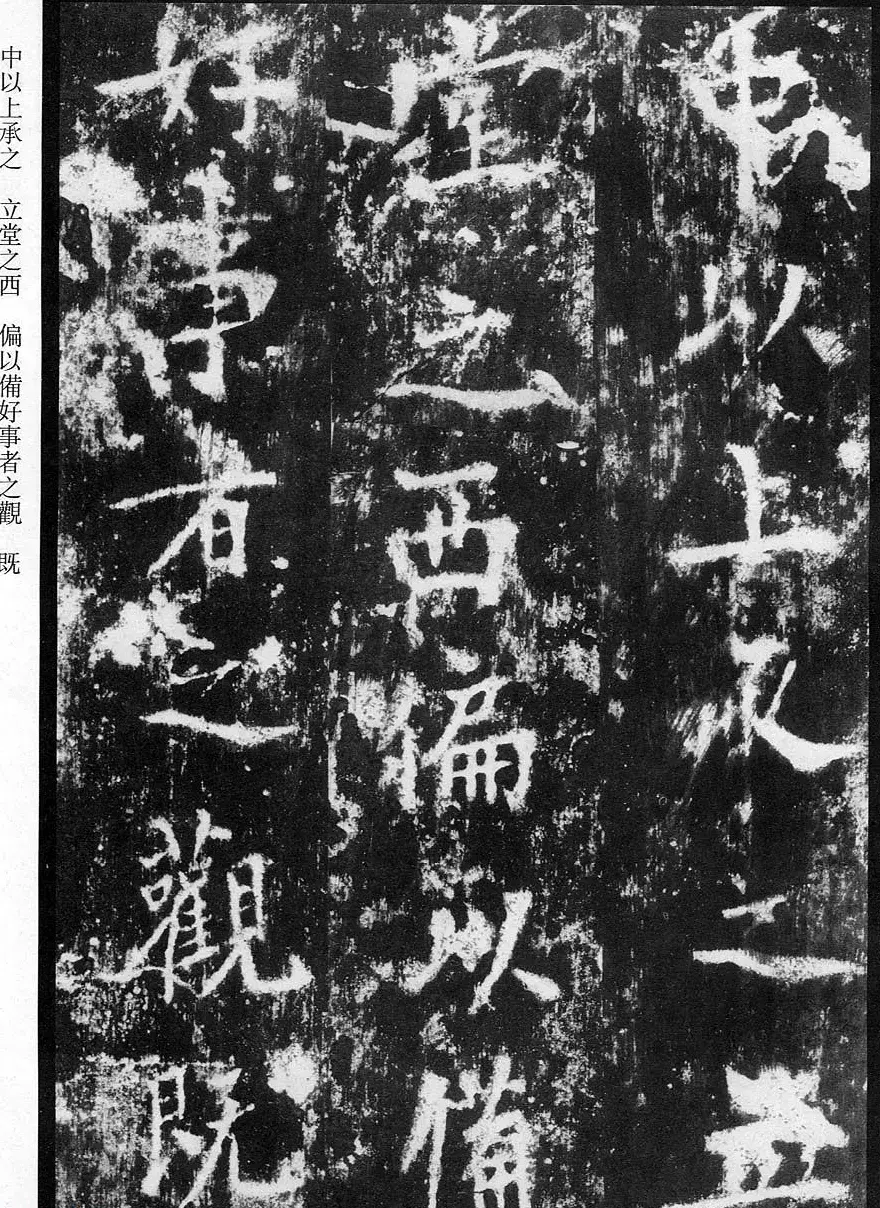 中以上承之立
堂之西偏以備
好事者之觀既
中以上承之　立堂之西　偏以備好事者之觀　既